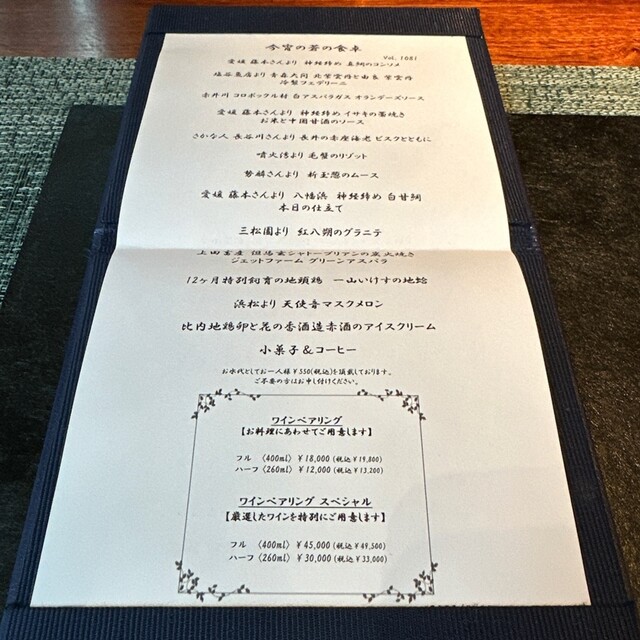 今宵の蒼の食卓
Vol. 1081
愛媛 藤本さんより 神経締め 真鯛のコンソメ
塩谷魚店より 青森大間 北紫雲丹と由良 紫雲丹
冷製フェデリーニ
赤井川 コロポックル村 白アスパラガス オランデーズソース
愛媛 藤本さんより 神経締め イサキの藁焼き
お米と中国甘酒のソース
さかな人 長谷川さんより 長井の赤座海老 ビスクとともに
噴火湾より 毛蟹のリゾット
勢麟さんより 新玉葱のムース
愛媛 藤本さんより 八幡浜 神経締め 白甘鯛
本日の仕立て
三松園より 紅八朔のグラニテ
上田畜産 但馬玄シャトーブリアンの炭火焼き
ジェットファーム グリーンアスパラ
12ヶ月特別飼育の地頭鶏 一山いけすの地蛤
浜松より 天使音マスクメロン
比内地鶏卵と花の香酒造赤酒のアイスクリーム
小菓子&コーヒー
お水代としてお一人様¥550(税込)を頂戴しております。
ご不要の方はお申し付けください。
ワインペアリング
【お料理にあわせてご用意します】
フル 〈400ml〉 ¥18,000 (税込¥19,800)
ハーフ 〈260ml〉 ¥12,000 (税込¥13,200)
ワインペアリング スペシャル
【厳選したワインを特別にご用意します】
フル 〈400ml〉 ¥45,000 (税込¥49,500)
ハーフ 〈260ml〉 ¥30,000 (税込¥33,000)